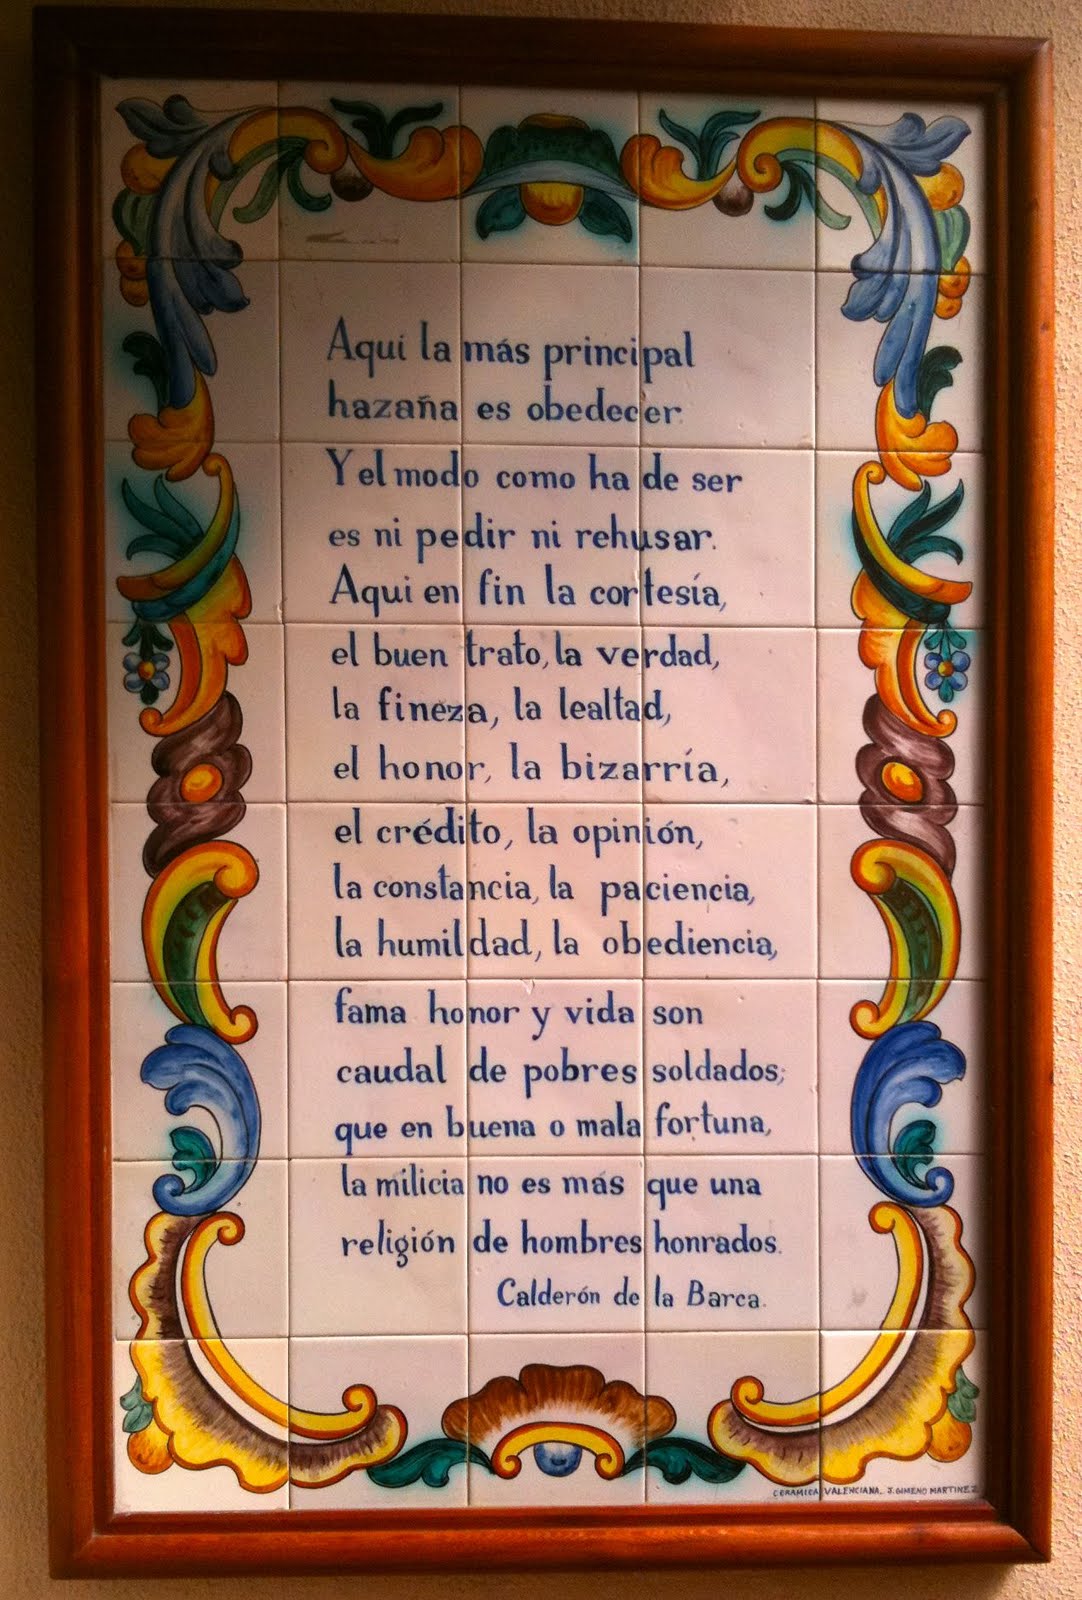 Aquí la más principal
hazaña es obedecer.
Y el modo como ha de ser
es ni pedir ni rehusar.
Aqui en fin la cortesía,
el buen trato, la verdad,
la fineza, la lealtad,
el honor, la bizarría,
el crédito, la opinión,
la constancia, la paciencia,
la humildad, la obediencia,
fama honor y vida son
caudal de pobres soldados;
que en buena o mala fortuna,
la milicia no es más que una
religión de hombres honrados.
Calderón de la Barca.
CERAMICA VALENCIANA. J. GIMENO MARTINEZ